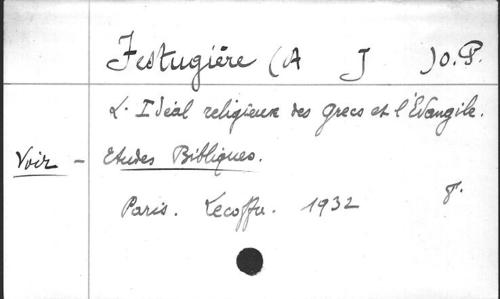 Festugière (A J ) O.P.
L'Idéal religieux des Grecs et l'Evangile.
Voir - Etudes Bibliques.
Paris. Lecoffre. 1932 8°.